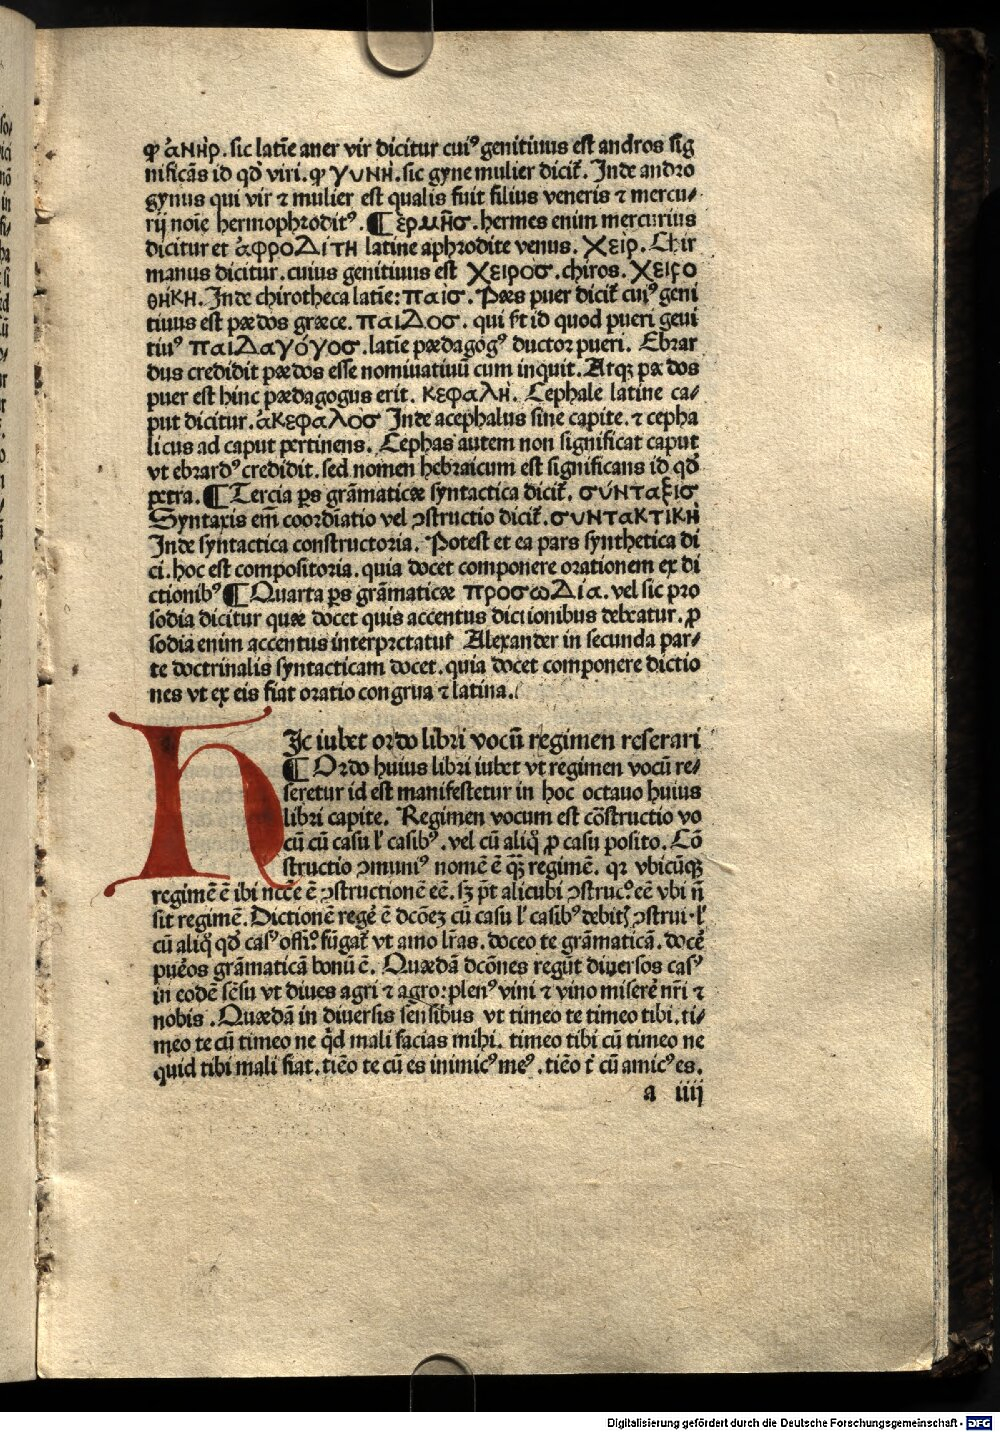 ꝙ ἀɴʜ̀ρ. sic latīe aner vir dicitur cuiꝰ genitiuus est andros sig
nificās id qd̕ viri. ꝙ γυɴʜ̀. sic gyne mulier dicit᷑. Inde andro
gynus qui vir ⁊ mulier est qualis fuit filius veneris ⁊ mercu⸗
rij noīe hermophroditꝰ. ¶ ἑρμῆσ. hermes enim mercurius
dicitur et ἀφροΔίτη latine aphrodite venus. χειρ. Chir
manus dicitur. cuius genitiuus est χειροσ. chiros. χειρο
θηκη. Inde chirotheca latīe: παισ. Pæs puer dicit᷑ cuiꝰ geni
tiuus est pædos græce. παιΔοσ. qui est id quod pueri geni
tiuꝰ παιΔαγόγοσ. latīe pædagogꝰ ductor pueri. Ebrar
dus credidit pædos esse nominatiuū cum inquit. Atqꝫ pædos
puer est hinc pædagogus erit. κεφαλὴ. Cephale latine ca⸗
put dicitur. ἀκεφαλοσ Inde acephalus sine capite. ⁊ cepha
licus ad caput pertinens. Cephas autem non significat caput
vt ebrardꝰ credidit. sed nomen hebraicum est significans id qd̕
petra. ¶ Tercia ꝑs grāmaticæ syntactica dicit᷑. σύνταξισ
Syntaxis em̄ coordīatio vel ꝯstructio dicit᷑. συντακτικὴ
Inde syntactica constructoria. Potest et ea pars synthetica di
ci. hoc est compositoria. quia docet componere orationem ex di
ctionibꝰ ¶ Quarta ꝑs grāmaticæ προσωΔία. vel sic pro
sodia dicitur quæ docet quis accentus dictionibus debeatur. ꝓ
sodia enim accentus interpretatur Alexander in secunda par⸗
te doctrinalis syntacticam docet. quia docet componere dictio
nes vt ex eis fiat oratio congrua ⁊ latina.
HIc iubet ordo libri vocū regimen reserari
¶ Ordo huius libri iubet vt regimen vocū re⸗
seretur id est manifestetur in hoc octauo huius
libri capite. Regimen vocum est cōstructio vo
cū cū casu l̕ casibꝰ. vel cū aliq̊ ꝓ casu posito. Cō
structio ꝯmuniꝰ nomē ē qꝫ̄ regimē. qr vbicūqꝫ
regimē ē ibi nccē ē ꝯstructionē eē. sꝫ pt̄ alicubi ꝯstruc. eē vbi n̄
sit regimē. Dictionē regē ē dcōeꝫ cū casu l̕ casibꝰ debit ꝯstrui. l̕
cū aliq̊ qd̕ casꝰ offi. fūgat᷑ vt amo lr̄as. doceo te grāmaticā. docē
puēos grāmaticā bonū ē. Quædā dcōnes regūt diuersos casꝰ
in eodē sēsu vt diues agri ⁊ agro: plenꝰ vini ⁊ vino miserē nr̄i ⁊
nobis. Quædā in diuersis sensibus vt timeo te timeo tibi. ti⸗
meo te cū timeo ne qd mali facias mihi. timeo tibi cū timeo ne
quid tibi mali fiat. tiēo te cū es inimicꝰ meꝰ. tiēo t̄ cū amicꝰ es.
a iiij
Digitalisierung gefördert durch die Deutsche Forschungsgemeinschaft - DFG